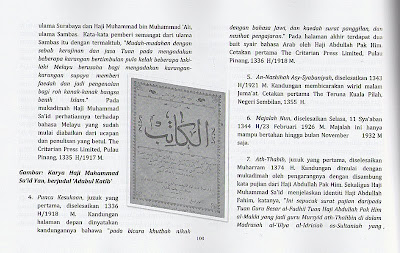 ulama Surabaya dan Haji Muhammad bin Muhammad 'Ali,
ulama Sambas. Kata-kata pemberi semangat dari ulama
Sambas itu dengan termaktub, "Mudah-mudahan dengan
sebab kerajinan dan jasa Tuan pada mengadakan
beberapa karangan bertimbulan pula kelak beberapa laki-
laki Melayu berusaha bagi mengadakan karangan-
karangan supaya memberi
faedah dan jadi pengenalan
bagi roh kanak-kanak bangsa
betih Islam." Pada
mukadimah Haji Muhammad
Sa'id perbatiannya terhadap
bahasa Melayu yang sudah
mulai diabaikan dari ucapan
dan penulisan yang betul. The
Criterian Press Limited, Pulau
Pinang, 1335 H/1917 M.
Gambar: Karya Haji Muhammad
Sa'id Yan, berjudul 'Adabul Katib'
4. Punca Kesukaan, juzuk yang
pertama, diselesaikan 1336
H/1918 M. Kandungan
halaman depan dinyatakan
kandungannya bahawa "pada bicara khutbah nikah
الكاتب
104
dengan bahasa Jawi, dan kaedah surat panggilan, dan
nasihat pengajaran." Pada halaman akhir terdapat dua
bait syair bahasa Arab oleh Haji Abdullah Pak Him.
Cetakan pertama The Critarian Press Limited, Pulau
Pinang, 1336 H/1918 M.
5. An-Nashihah Asy-Syabaniyah, diselesaikan 1343
H/1921 M. Kandungan membicarakan wirid malam
Juma'at. Cetakan pertama The Teruna Kuala Pilah,
Negeri Sembilan, 1358 H.
6. Majalah Nun, diselesaikan Selasa, 11 Sya'aban
1344 H/23 Februari 1926 M. Majalah ini hanya
mampu bertahan hingga bulan November 1932 M
saja.
7. Ath-Thahib, juzuk yang pertama, diselesaikan
Muharram 1374 H. Kandungan dimulai dengan
mukadimah oleh pengarangnya dengan disambung
kata pujian dari Haji Abdullah Pak Him. Sekaligus Haji
Muhammad Sa'id menjelaskan identiti Haji Abdullah
Fahim, katanya, "Ini sepacak surat pujian daripada
Tuan Guru Besar al-Fadhil Tuan Haji Abdullah Pak Him
al-Makki yang jadi guru Mursyid ath-Thalibin di dalam
Madrasah al-'Ulya al-Idrisiah as-Sultaniah yang